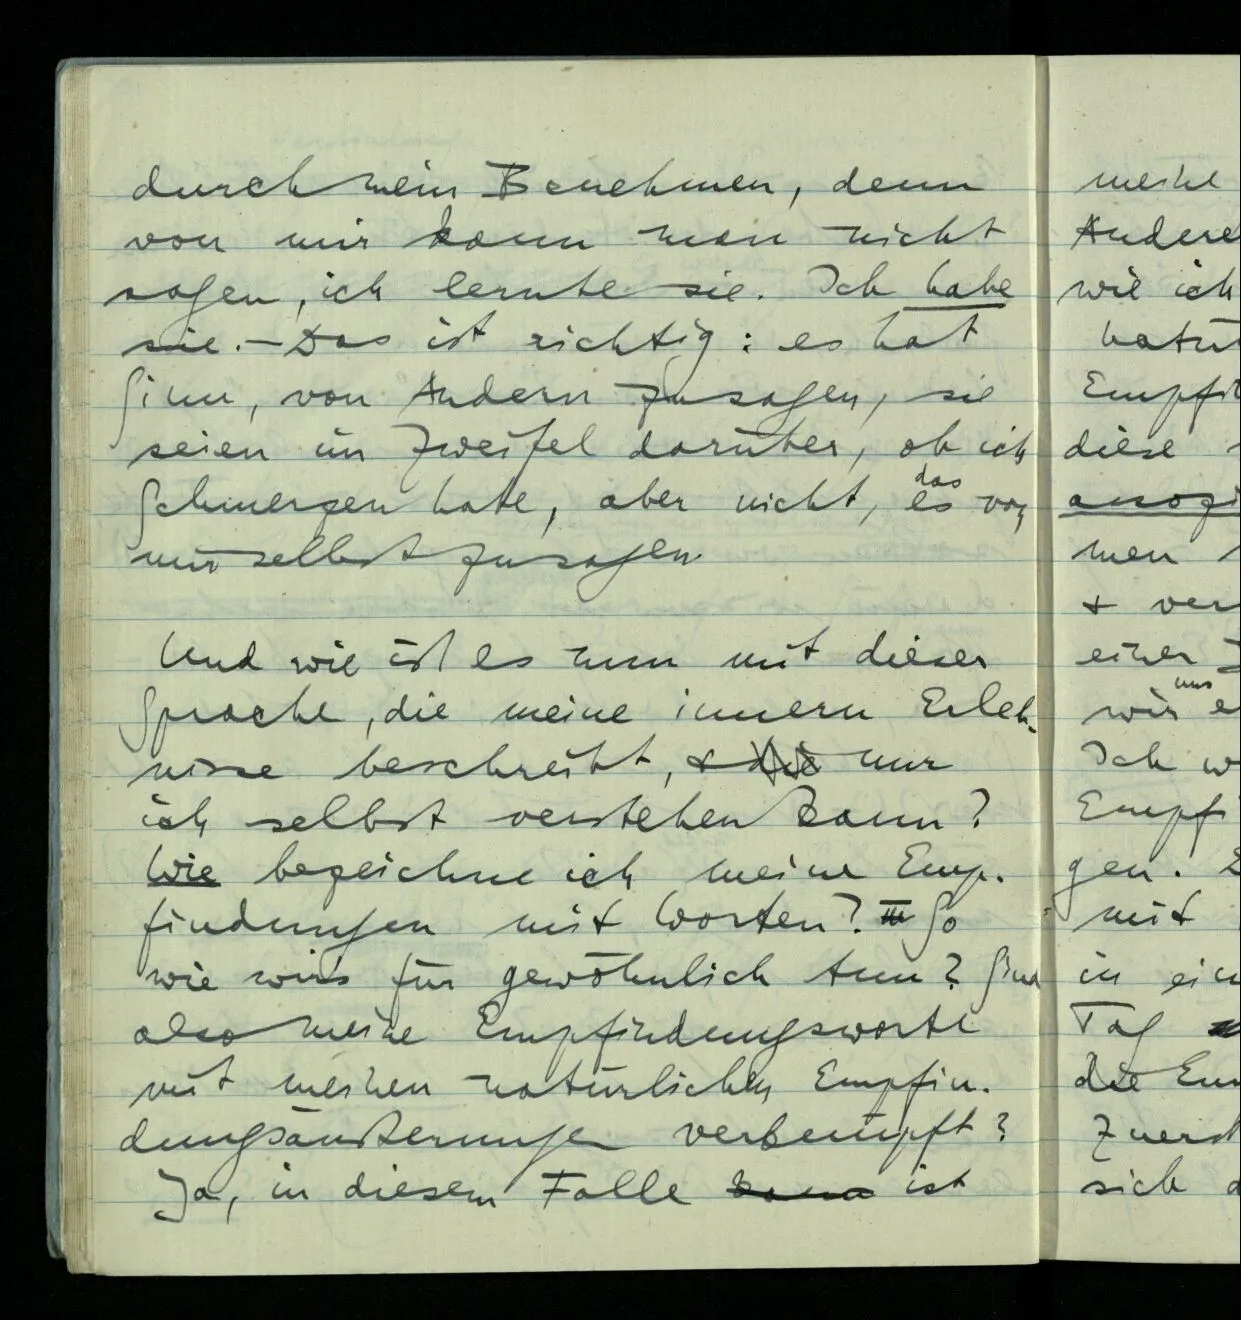 durch mein Benehmen, denn
von mir kann man nicht
sagen, ich lernte sie. Ich habe
sie. – Das ist richtig: es hat
Sinn, von Andern zu sagen, sie
seien im Zweifel darüber, ob ich
das
Schmerzen habe, aber nicht, es von
mir selbst zu sagen.
Und wie ist es nun mit dieser
Sprache, die meine innern Erleb-
nisse beschreibt, & die nur
ich selbst verstehen kann?
Wie bezeichne ich meine Emp-
findungen mit Worten? So
wie wir's für gewöhnlich tun? Sind
also meine Empfindungsworte
mit meinen natürlichen Empfin-
dungsäußerungen verknüpft?
Ja, in diesem Falle kann ist
meine
Andere
wie ich
natür
Empfin
diese
assozi
men
& ver
einer
uns
wir e
Ich w
Empfi
gen.
mit
in ein
Tag
die Em
Zuerst
sich